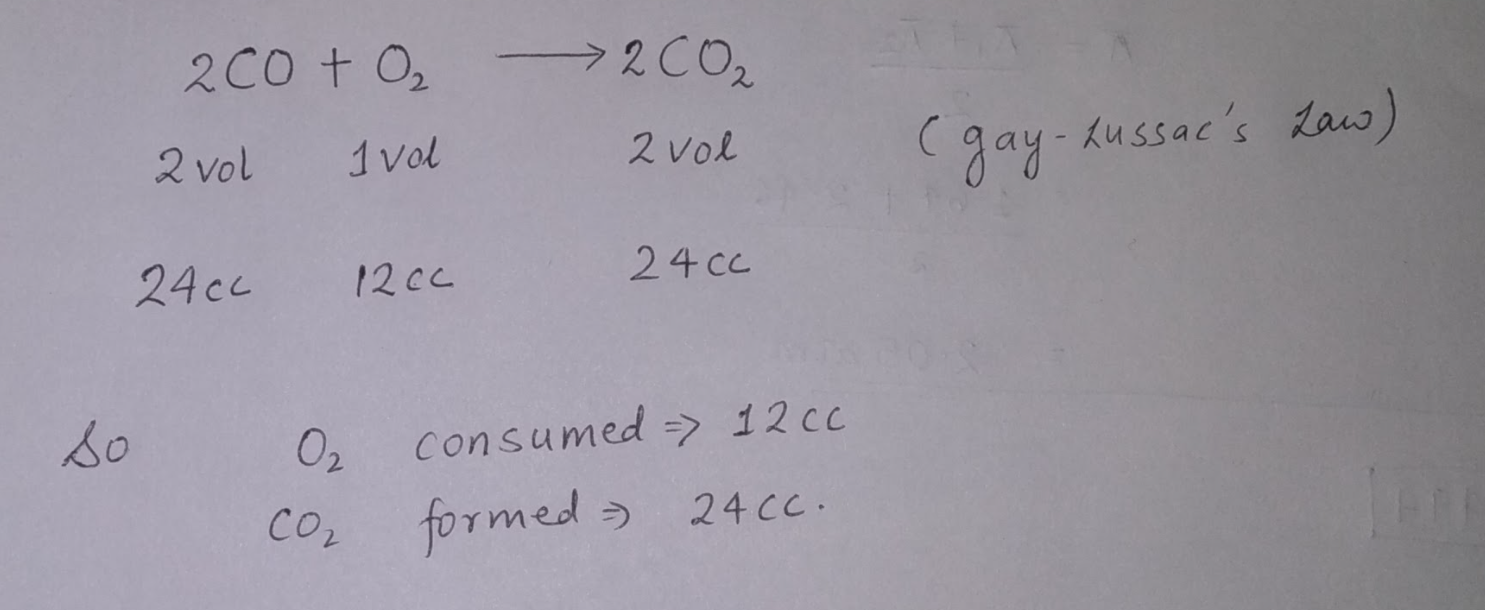 2CO + O₂ ⟶ 2CO₂
2 vol 1 vol 2 vol (gay-Lussac's Law)
24cc 12cc 24cc
So O₂ consumed ⇒ 12cc
CO₂ formed ⇒ 24cc.